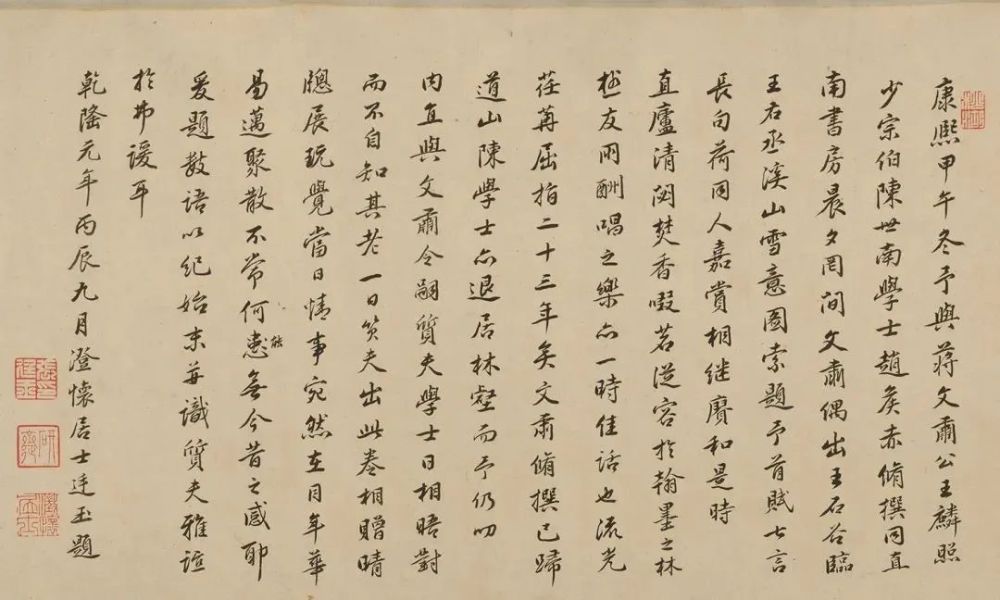 康熙甲午冬予與蔣文肅公王麟照
少宗伯陳世南學士趙矦赤脩撰同直
南書房晨夕罔間文肅偶出王石谷臨
王右丞溪山雪意圖索題予首賦七言
長句荷同人嘉賞相继賡和是時
直廬清閟焚香啜茗從容於翰墨之林
樾友朋酬唱之樂亦一時佳話也流光
荏苒屈指二十三年矣文肅脩撰已歸
道山陳學士亦退居林壑而予仍叨
内直與文肅令嗣質夫學士日相晤對
而不自知其老一日質夫出此卷相贈晴
牕展玩覺當日情事宛然在目年華
易邁聚散不常何能無今昔之感耶
爰題數語以纪始末并識質夫雅誼
於弗諼耳
乾隆元年丙辰九月澄懷居士廷玉題